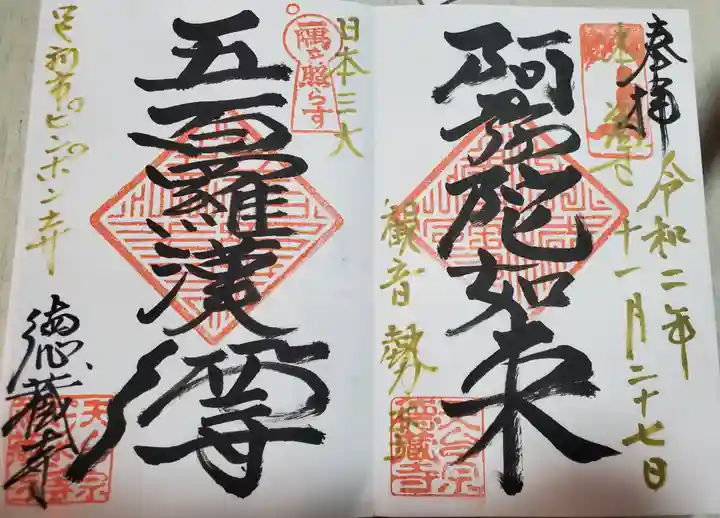 奉拝
令和二年
十一月二十七日
阿弥陀如来
観音 勢
天台宗
徳蔵寺
日本三大
一隅を照らす
五百羅漢
足利市ピンポン寺
徳蔵寺